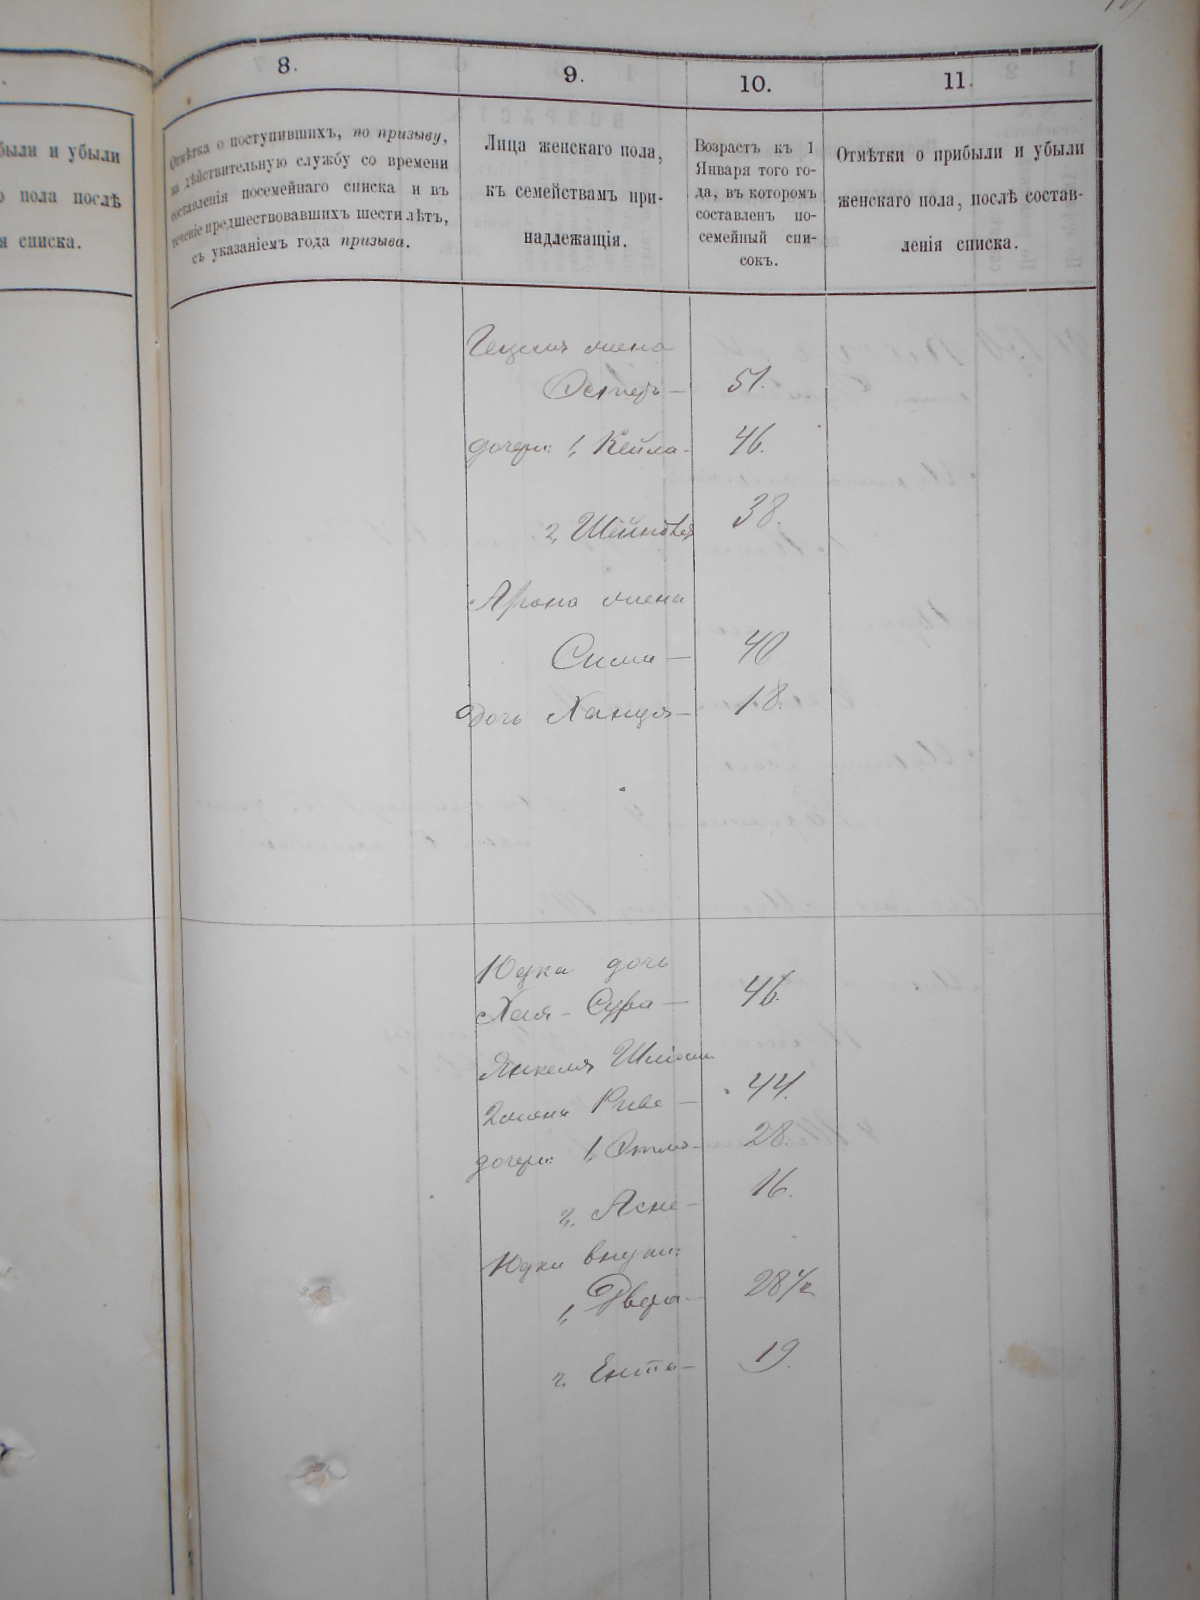 были и убыли
пола послѣ
я списка.
8.
9.
10.
11.
Отмѣтка о поступившихъ, по призыву,
на дѣйствительную службу со времени
составленія посемейнаго списка и въ
теченіе предшествовавшихъ шести лѣтъ,
съ указаніемъ года призыва.
Лица женскаго пола,
къ семействамъ при-
надлежащія.
Возрастъ къ 1
Января того го-
да, въ которомъ
составленъ по-
семейный спи-
сокъ.
Отмѣтки о прибыли и убыли
женскаго пола, послѣ состав-
ленія списка.
жена
Эстеръ — 51.
дочери: 1, Кейла - 46.
2, 38.
Арона жена
Сима — 40
дочь Ханця — 18.
Юдка дочь
Хая - Сура — 46.
Янкеля
жена Риве — 44.
дочери: 1, 28.
2, Асне - 16.
Юдки внуки:
1, Двера - 28 1/2
2, Ента - 19.